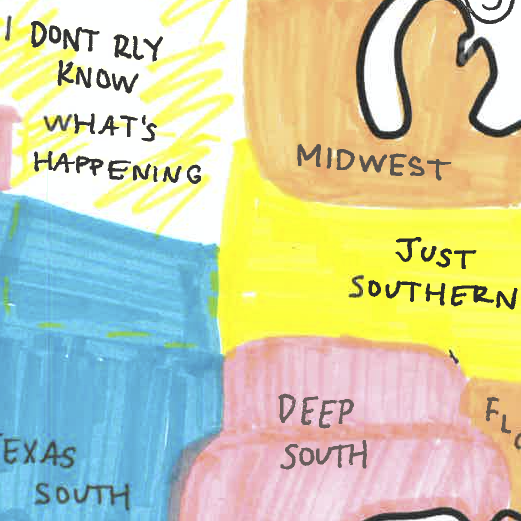 I DONT RLY
KNOW
WHAT'S
HAPPENING
MIDWEST
JUST
SOUTHERN
DEEP
SOUTH
EXAS
SOUTH
FLO